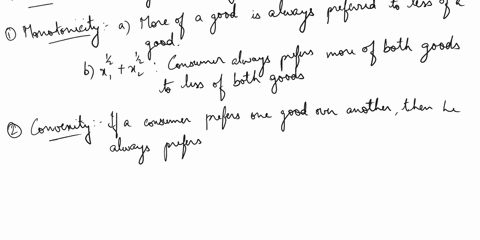 ① Monotonicity :- a) More of a good is always preferred to less of a
good.
b) x₁^½ + x₂^½ : Consumer always prefers more of both goods
to less of both goods
② Convexity :- If a consumer prefers one good over another, then he
always prefers